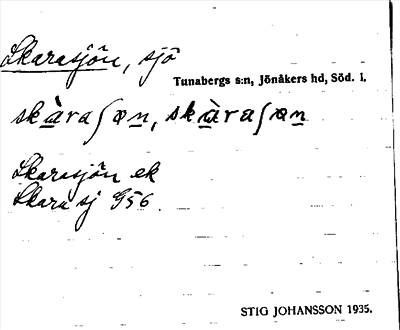 Skarasjön, sjö
Tunabergs s:n, Jönåkers hd, Söd. l.
skàraʃøn, skàraʃøn
Skarasjön ek
Skara sj G56
STIG JOHANSSON 1935.